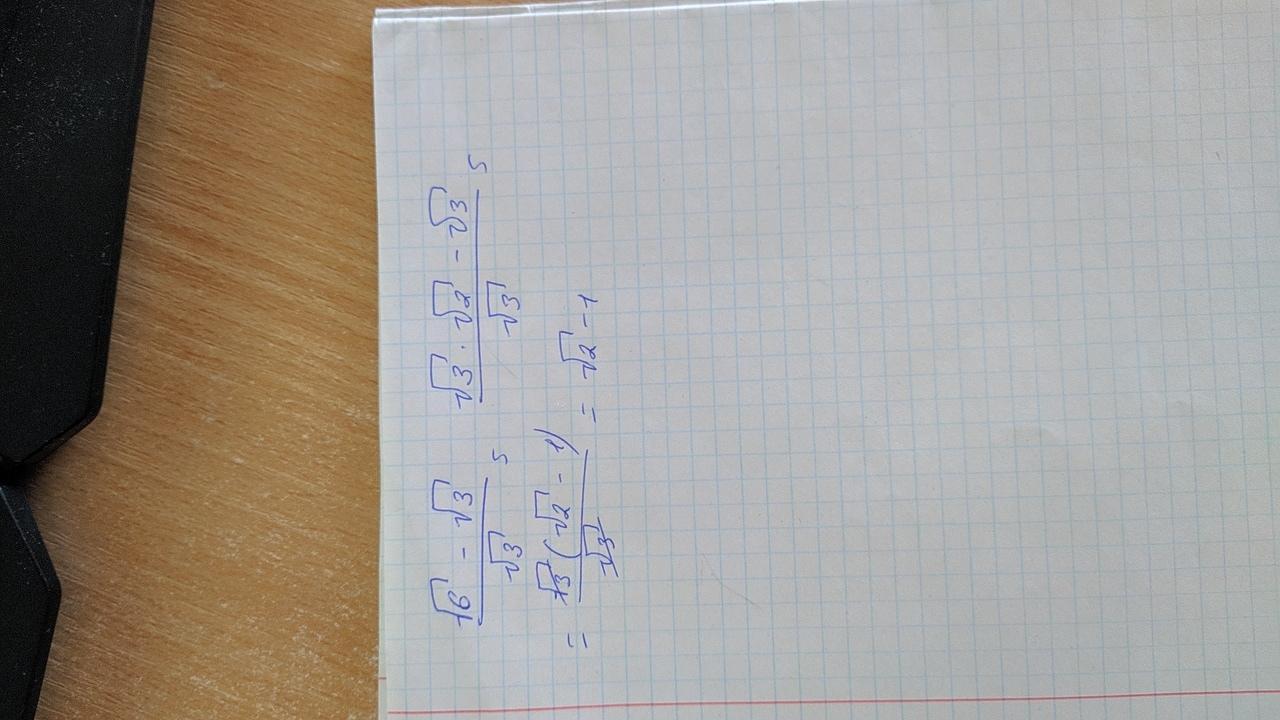 (√6 - √3)/√3 = (√3 · √2 - √3)/√3 =
= (√3(√2 - 1))/√3 = √2 - 1